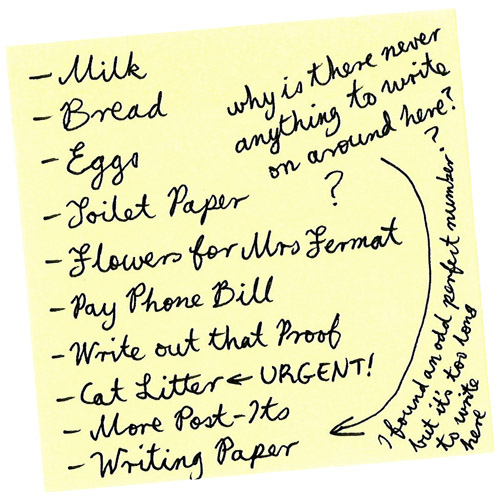 - Milk
- Bread
- Eggs
- Toilet Paper
- Flowers for Mrs Fermat
- Pay Phone Bill
- Write out that Proof
- Cat Litter ← URGENT!
- More Post-Its
- Writing Paper
why is there never
anything to write
on around here?
?
I found an odd perfect number?
but it's too long
to write
here